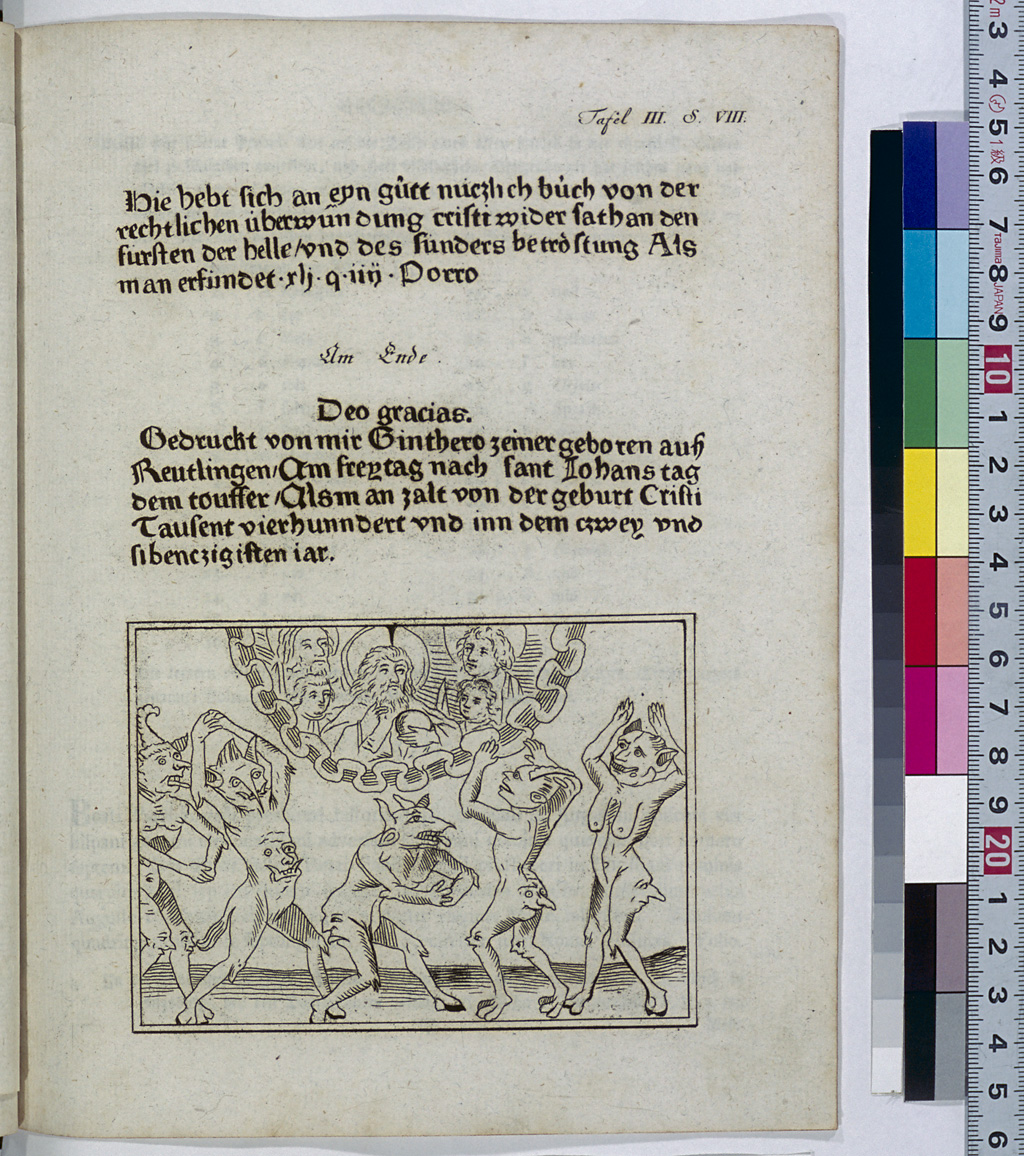 Tafel III. S. VIII.
Hie hebt sich an eyn gůtt nüczlich bůch von der
rechtlichen überwündung cristi wider sathan den
fürsten der helle/vnd des sünders betröstung Als
man erfindet·xlj·q·iiij·Porro
Am Ende.
Deo gracias.
Gedruckt von mir Ginthero zeiner geboren auß
Reutlingen/Am freytag nach sant Johans tag
dem touffer/Als man zalt von der geburt Cristi
Tausent vierhunndert vnd inn dem czwey vnd
sibenczigisten iar.
2m 3 4 5 1級 6 7 8 9 10 1 2 3 4 5 6 7 8 9 20 1 2 3 4 5 6
Tajima JAPAN